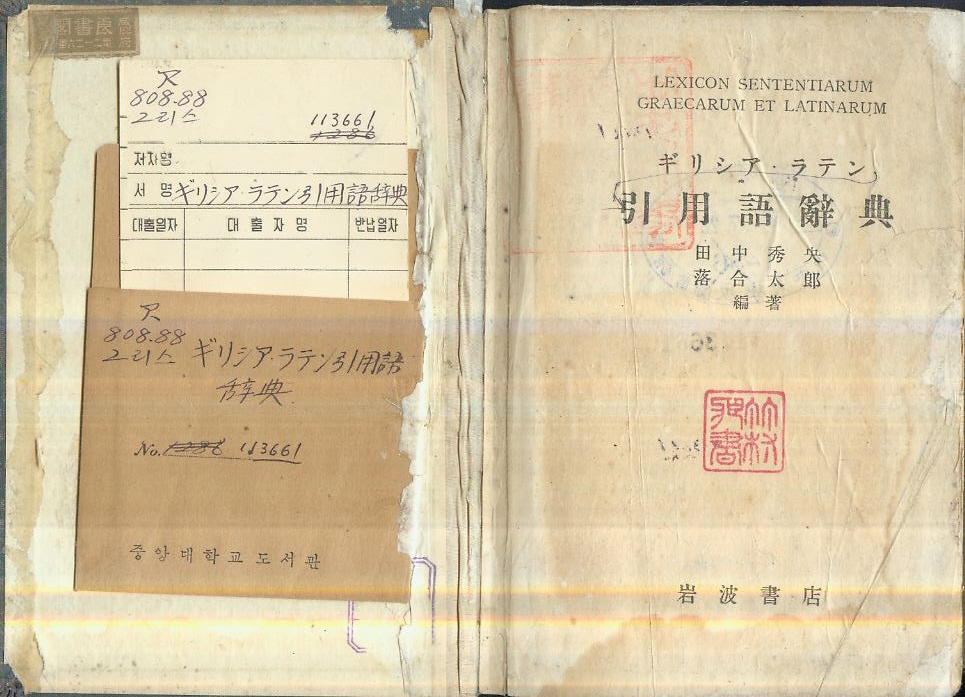 良書閣
R
808.88
그리스
113661
1286
저자명
서 명 ギリシア・ラテン引用語辞典
대출일자 대 출 자 명 반납일자
R
808.88
그리스 ギリシア・ラテン引用語
辞典
No. 1286 113661
중앙대학교도서관
LEXICON SENTENTIARUM
GRAECARUM ET LATINARUM
ギリシア・ラテン
引用語辭典
田中秀央
落合太郎
編著
岩波書店